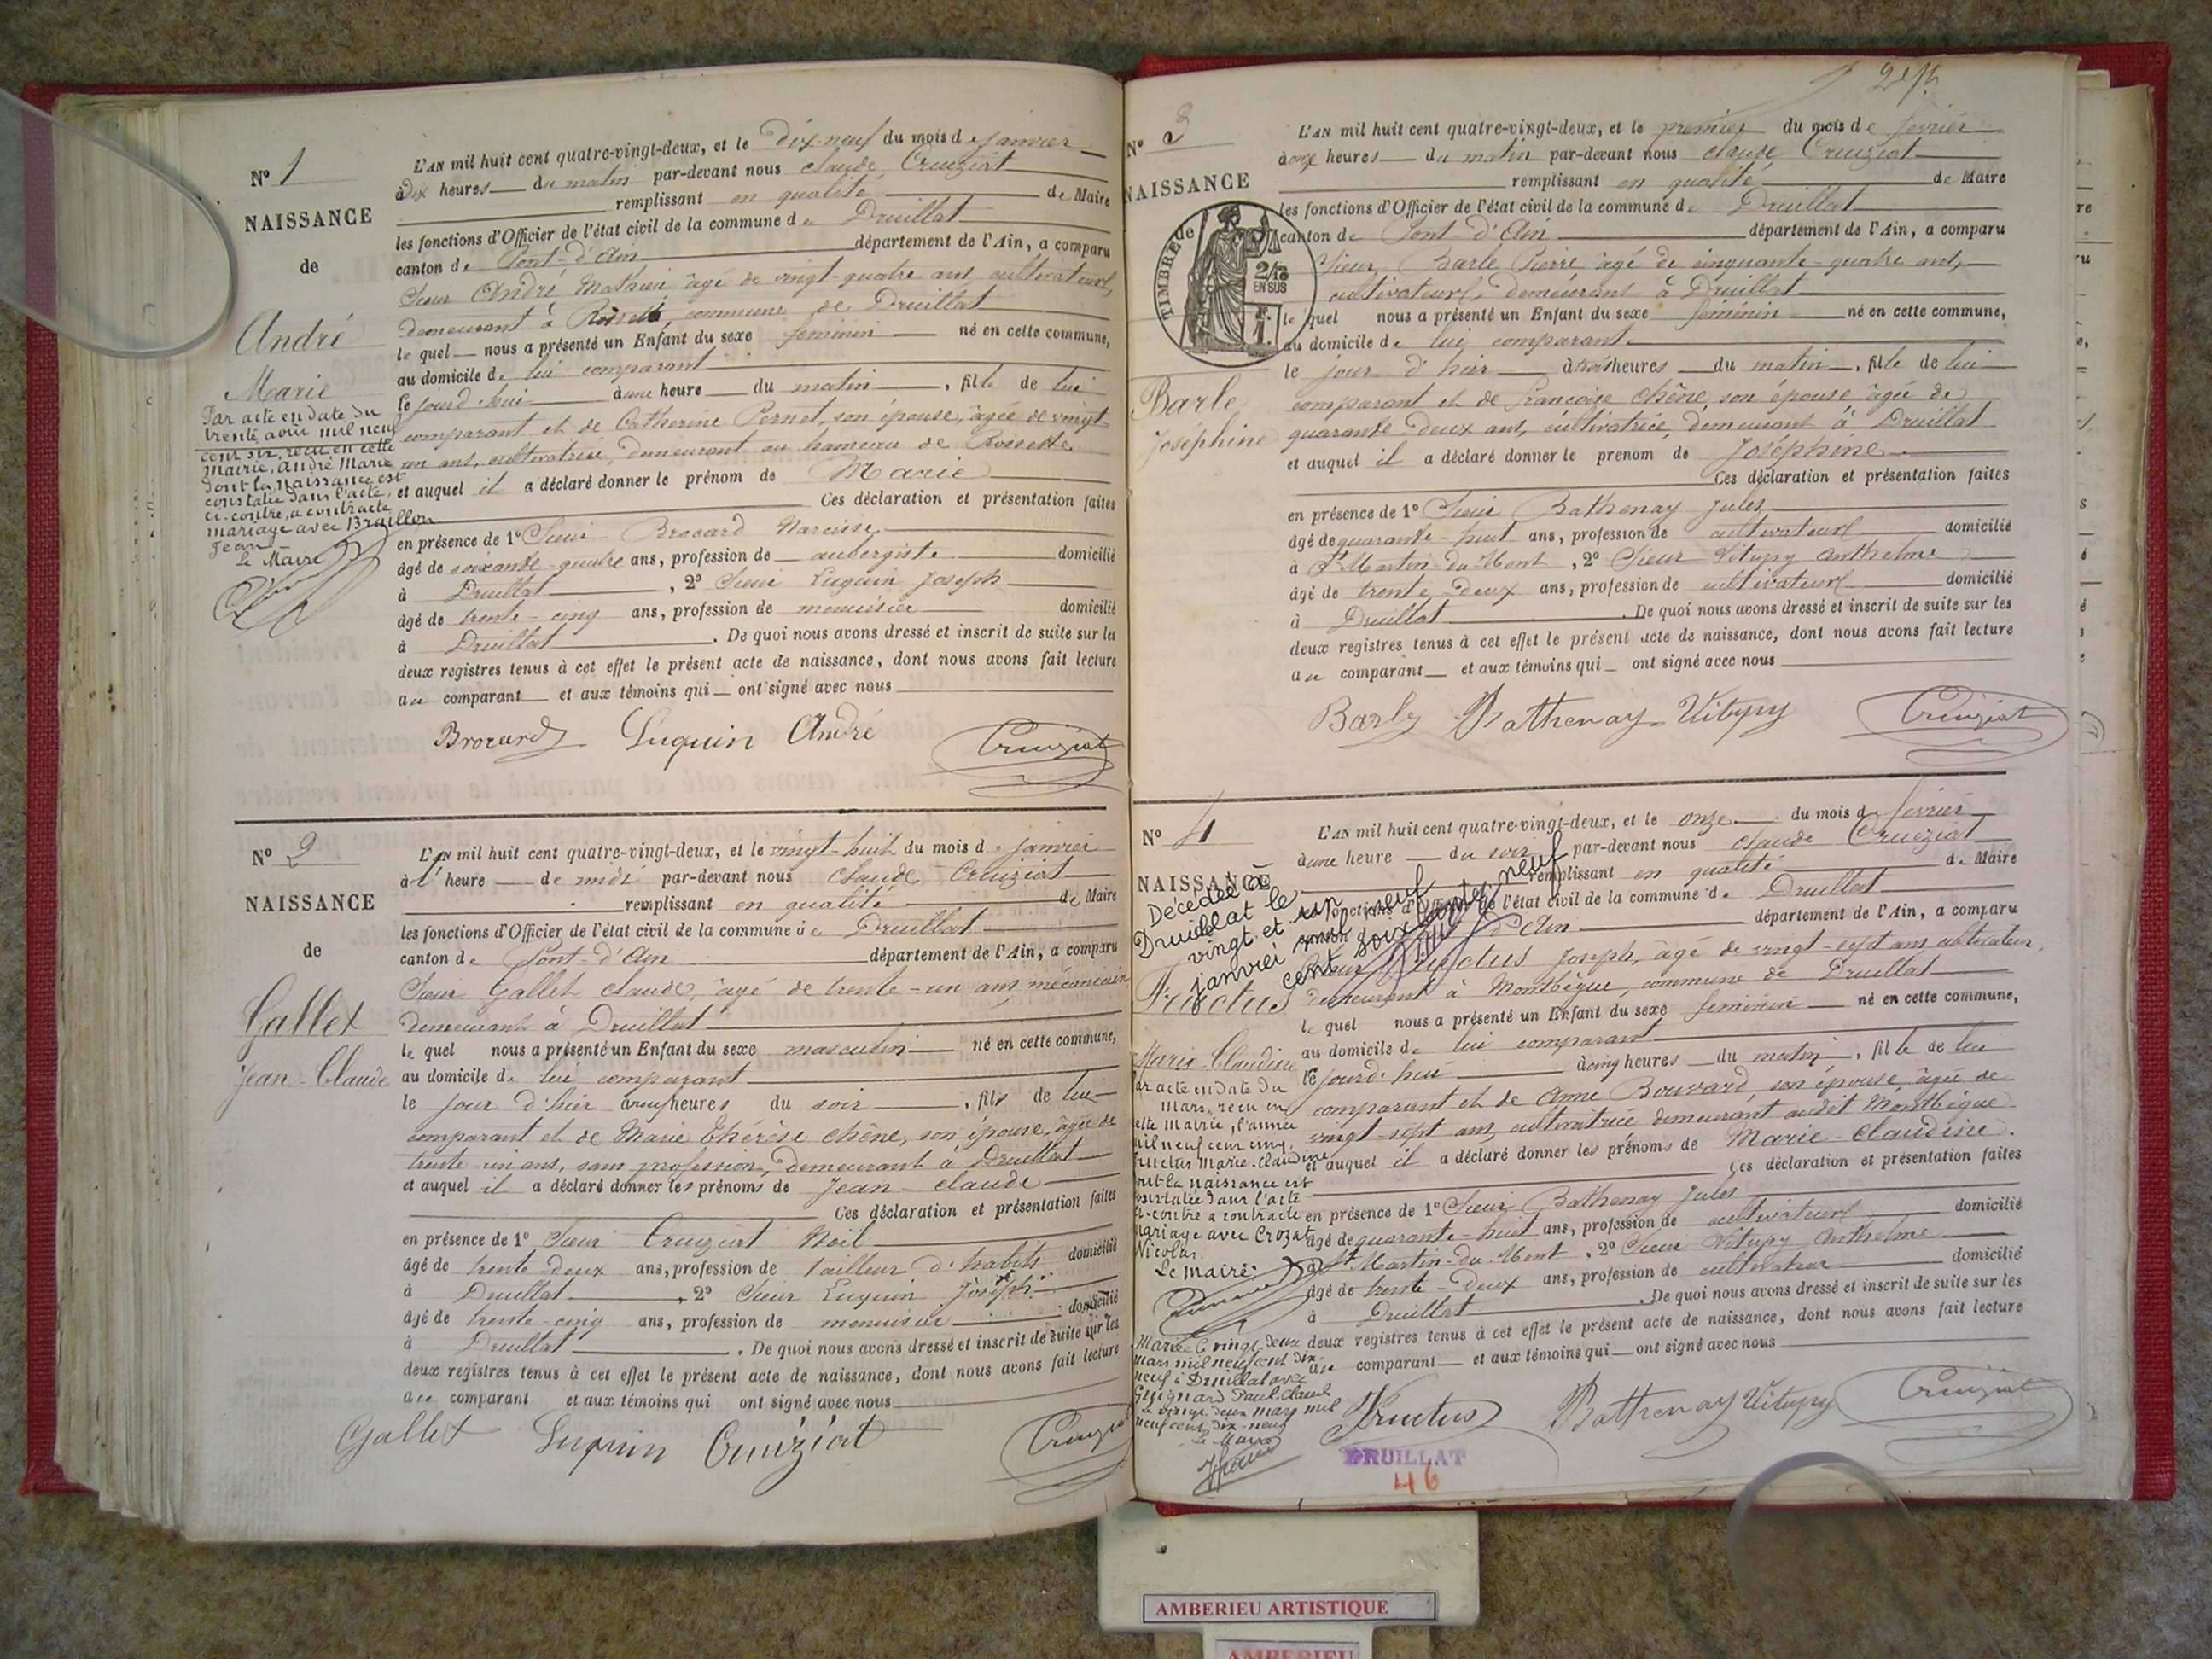 N° 1
NAISSANCE
de
André
Marie
Par acte en date du
trente août mil neuf
cent six, reçu en cette
mairie, André Marie
dont la naissance est
constatée dans l'acte
ci-contre, a contracté
mariage avec Braillon
Jean
Le Maire
L'AN mil huit cent quatre-vingt-deux, et le dix-neuf du mois de janvier
à dix heures du matin par-devant nous Claude Cruiziat
remplissant en qualité de Maire
les fonctions d'Officier de l'état civil de la commune de Druillat
canton de Pont-d'Ain département de l'Ain, a comparu
Sieur André Mathieu âgé de vingt-quatre ans, cultivateur,
demeurant à commune de Druillat
le quel nous a présenté un Enfant du sexe féminin né en cette commune,
au domicile de lui comparant
le jourd'hui à une heure du matin, fille de lui
comparant et de Catherine Pernet, son épouse, âgée de vingt-
un ans, cultivatrice, demeurant au hameau de Rossette
et auquel il a déclaré donner le prénom de Marie
Ces déclaration et présentation faites
en présence de 1° Sieur Brocard Narcisse
âgé de soixante-quatre ans, profession de aubergiste domicilié
à Druillat, 2° Sieur Luquin Joseph
âgé de trente-cinq ans, profession de menuisier domicilié
à Druillat. De quoi nous avons dressé et inscrit de suite sur les
deux registres tenus à cet effet le présent acte de naissance, dont nous avons fait lecture
au comparant et aux témoins qui ont signé avec nous
Brocard Luquin André Cruiziat
N° 2
NAISSANCE
de
Gallet
Jean-Claude
L'AN mil huit cent quatre-vingt-deux, et le vingt-huit du mois de janvier
à l'heure de midi par-devant nous Claude Cruiziat
remplissant en qualité de Maire
les fonctions d'Officier de l'état civil de la commune de Druillat
canton de Pont-d'Ain département de l'Ain, a comparu
Sieur Gallet Claude, âgé de trente-un ans, mécanicien
demeurant à Druillat
le quel nous a présenté un Enfant du sexe masculin né en cette commune,
au domicile de lui comparant
le jour d'hier à neuf heures du soir, fils de lui
comparant et de Marie Thérèse Chêne, son épouse, âgée de
trente-un ans, sans profession, demeurant à Druillat
et auquel il a déclaré donner les prénoms de Jean-Claude
Ces déclaration et présentation faites
en présence de 1° Sieur Cruiziat Noël
âgé de trente-deux ans, profession de tailleur d'habits domicilié
à Druillat, 2° Sieur Luquin Joseph
âgé de trente-cinq ans, profession de menuisier domicilié
à Druillat. De quoi nous avons dressé et inscrit de suite sur les
deux registres tenus à cet effet le présent acte de naissance, dont nous avons fait lecture
au comparant et aux témoins qui ont signé avec nous
Gallet Luquin Cruiziat Cruiziat
N° 3
NAISSANCE
de
TIMBRE
2/10
EN SUS
Barle
Joséphine
L'AN mil huit cent quatre-vingt-deux, et le premier du mois de février
à onze heures du matin par-devant nous Claude Cruiziat
remplissant en qualité de Maire
les fonctions d'Officier de l'état civil de la commune de Druillat
canton de Pont-d'Ain département de l'Ain, a comparu
Sieur Barle Pierre âgé de cinquante-quatre ans,
cultivateur, demeurant à Druillat
le quel nous a présenté un Enfant du sexe féminin né en cette commune,
au domicile de lui comparant
le jour d'hier à trois heures du matin, fille de lui
comparant et de Françoise Chêne, son épouse âgée de
quarante-deux ans, cultivatrice, demeurant à Druillat
et auquel il a déclaré donner le prénom de Joséphine
Ces déclaration et présentation faites
en présence de 1° Sieur Bathenay Jules
âgé de quarante-huit ans, profession de cultivateur domicilié
à St Martin-du-Mont, 2° Sieur Vitupy Anthelme
âgé de trente-deux ans, profession de cultivateur domicilié
à Druillat. De quoi nous avons dressé et inscrit de suite sur les
deux registres tenus à cet effet le présent acte de naissance, dont nous avons fait lecture
au comparant et aux témoins qui ont signé avec nous
Barle Bathenay Vitupy Cruiziat
N° 4
NAISSANCE
Décédée à
Druillat le
vingt et un
janvier mil neuf
cent soixante neuf
Fructus
Marie-Claudine
Par acte en date du
mars, reçu en
cette mairie, l'année
mil neuf cent cinq,
Fructus Marie-Claudine
dont la naissance est
constatée dans l'acte
ci-contre a contracté
mariage avec Crozat
Nicolas.
Le Maire:
Mariée le vingt deux
mars mil neuf cent dix
neuf à Druillat avec
Guignard Paul Claude
Le vingt deux mars mil
neuf cent dix-neuf
Le Maire
L'AN mil huit cent quatre-vingt-deux, et le onze du mois de février
à une heure du soir par-devant nous Claude Cruiziat
remplissant en qualité de Maire
les fonctions d'Officier de l'état civil de la commune de Druillat
d'Ain département de l'Ain, a comparu
Sieur Fructus Joseph, âgé de vingt-sept ans cultivateur,
demeurant à Montbègue, commune de Druillat
le quel nous a présenté un Enfant du sexe féminin né en cette commune,
au domicile de lui comparant
le jourd'hui à cinq heures du matin, fille de lui
comparant et de Anne Bouvard, son épouse âgée de
vingt-sept ans, cultivatrice demeurant audit Montbègue
et auquel il a déclaré donner les prénoms de Marie-Claudine.
Ces déclaration et présentation faites
en présence de 1° Sieur Bathenay Jules
âgé de quarante-huit ans, profession de cultivateur domicilié
à St Martin-du-Mont, 2° Sieur Vitupy Anthelme
âgé de trente-deux ans, profession de cultivateur domicilié
à Druillat. De quoi nous avons dressé et inscrit de suite sur les
deux registres tenus à cet effet le présent acte de naissance, dont nous avons fait lecture
au comparant et aux témoins qui ont signé avec nous
Fructus Bathenay Vitupy Cruiziat
DRUILLAT
46
AMBERIEU ARTISTIQUE
AMBERIEU